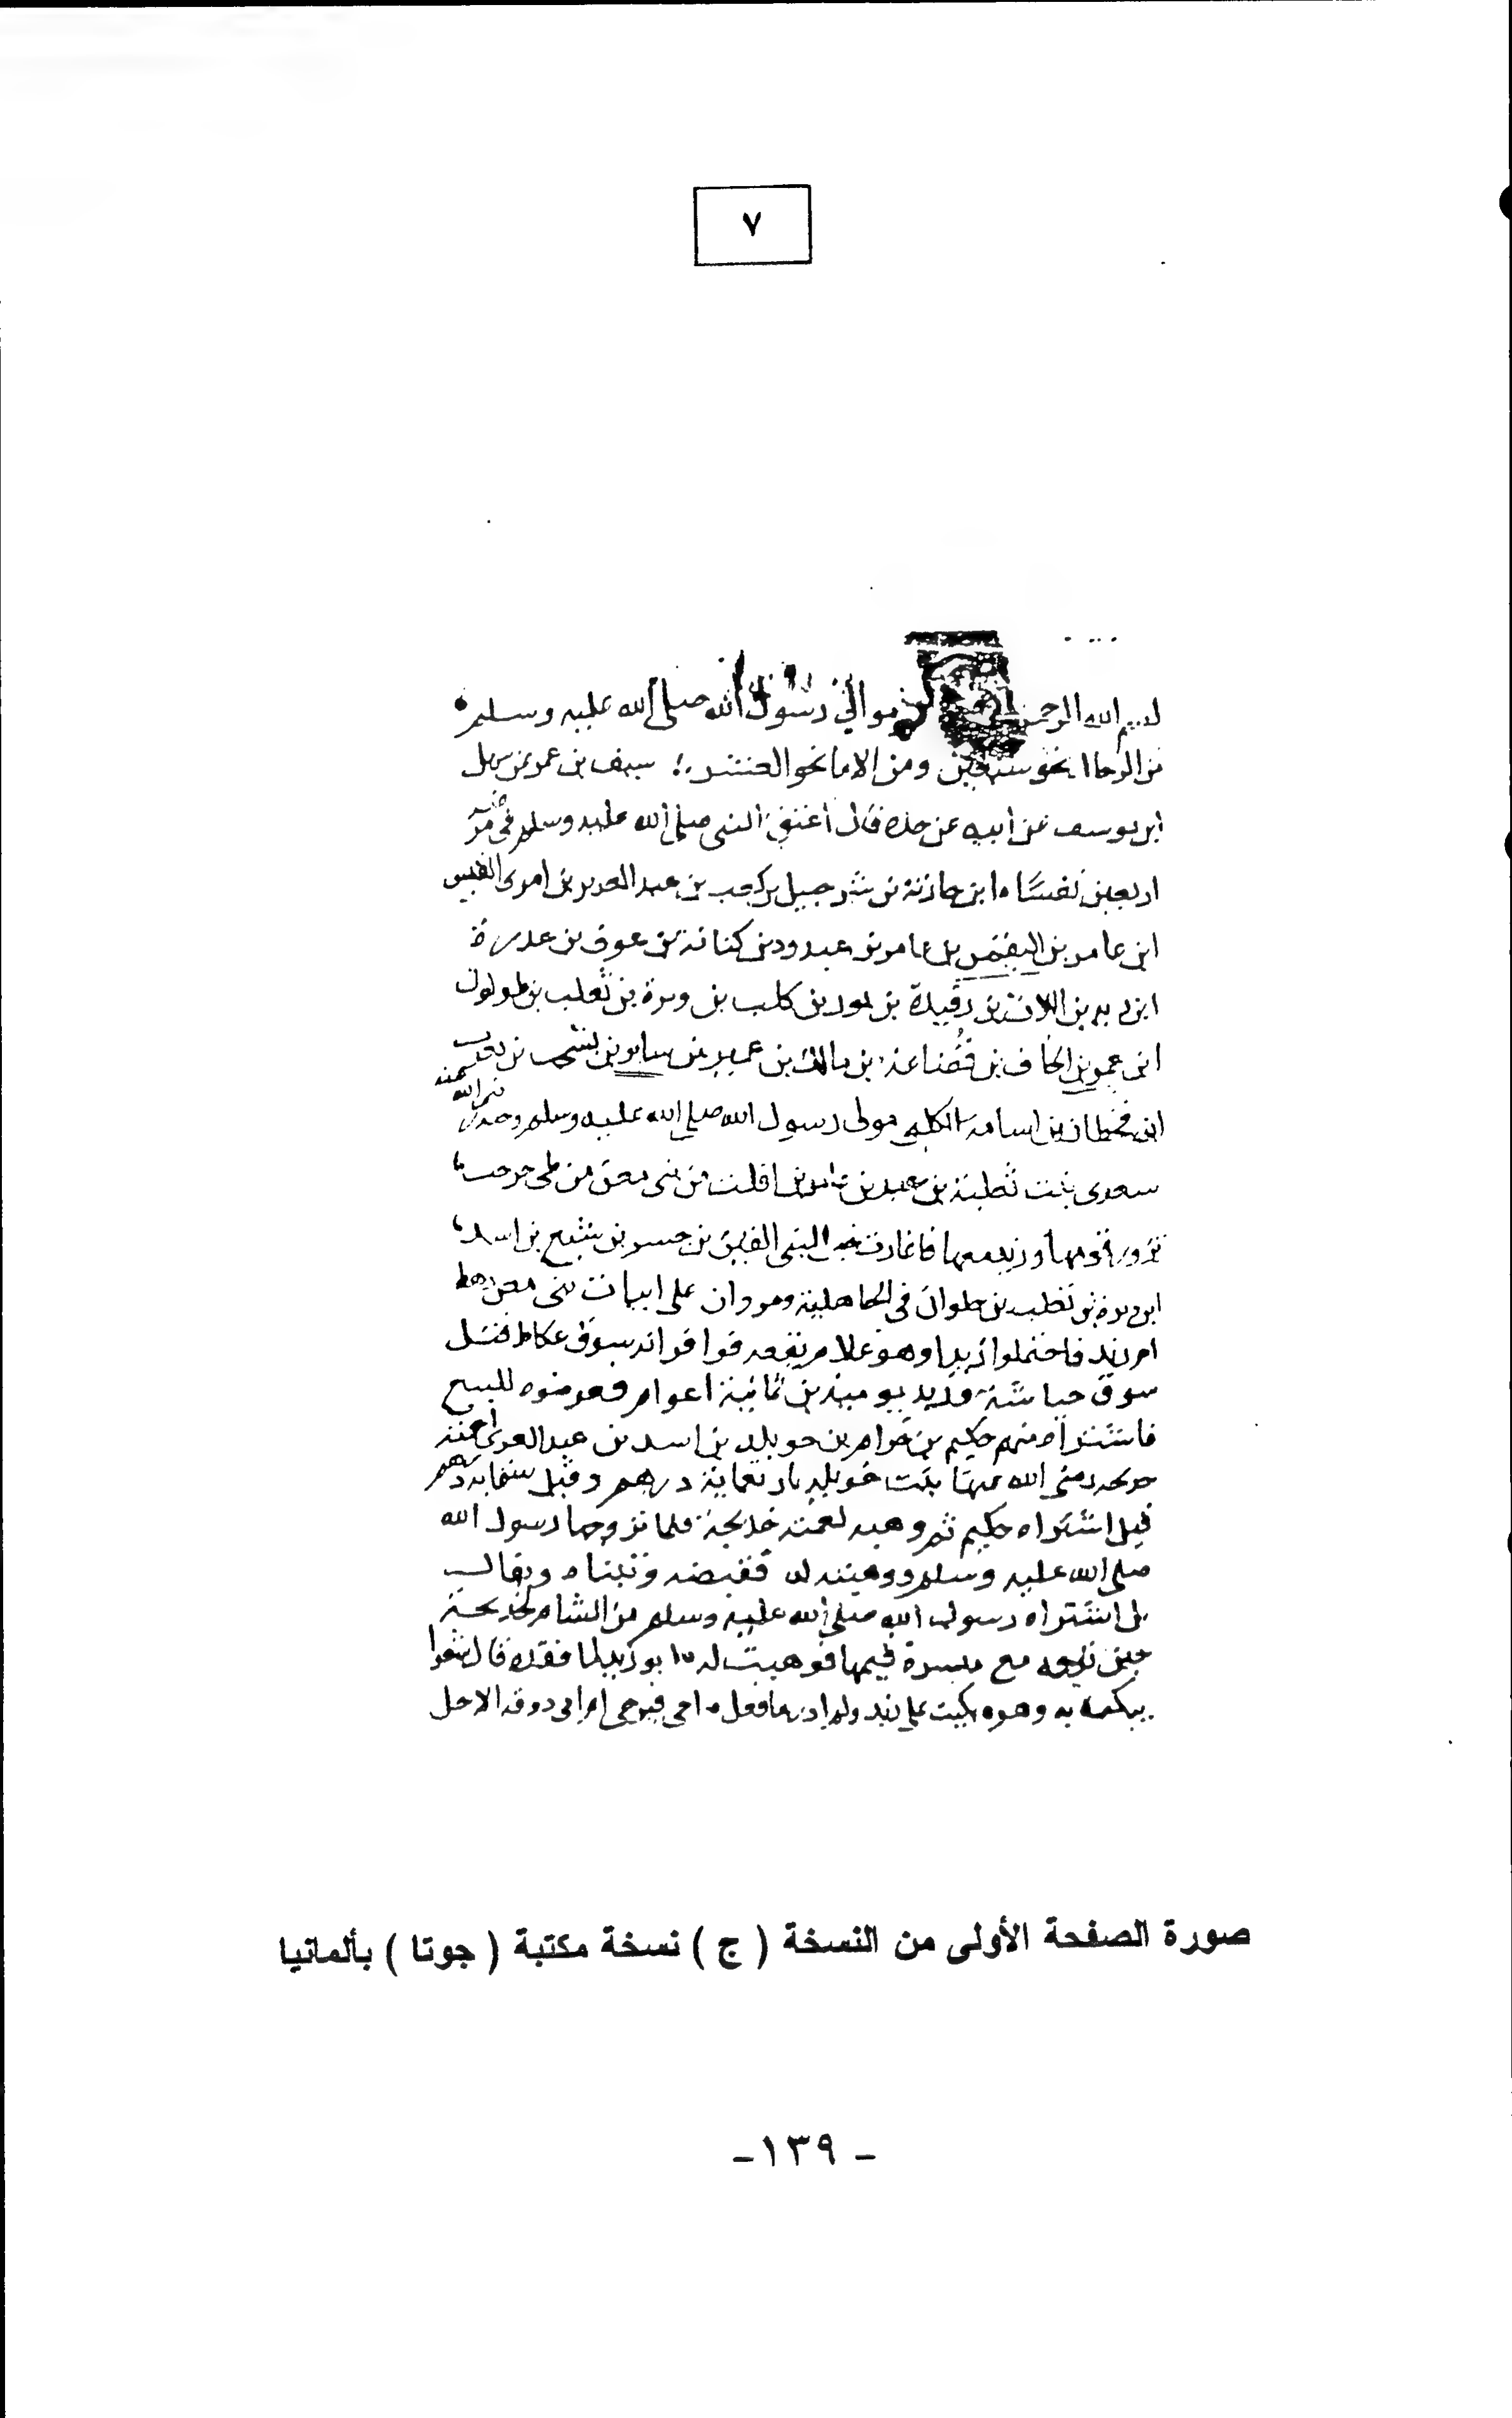 ٧
بسم الله الرحمن موالي رسول الله صلى الله عليه وسلم
من الرجال نحو ستين ومن الاما نحو العشر سيف بن عمر عن سهل
ابن يوسف عن ابيه عن جده قال اعتق النبي صلى الله عليه وسلم في مرضه
اربعين نفسًا ابن حارثة بن شرحبيل بن كعب بن عبد العزيز بن امرى القيس
ابن عامر بن عامر بن عبدود بن كنانة بن عوف بن عذرة
ابن زيد بن اللات بن رفيدة بن ثور بن كلب بن وبرة بن تغلب بن حلوان
ابن عمرو بن الحاف بن قضاعة بن مالك بن عمير بن سابور بن يشجب بن يعرب
ابن قحطان بن اسامة الكلبي مولى رسول الله صلى الله عليه وسلم وخدمه رضي الله عنه
سعدى بنت ثعلبة بن عبد بن عامر بن افلت من بني معن من طي خرجت
تزور قومها وزيد معها فاغارت خيل لبني القين بن جسر بن شيع بن اسد
ابن وبرة بن تغلب بن حلوان في الجاهلية ومروان على ابيات بني معن رهط
ام زيد فاحتملوا زيدا وهو غلام يفعه فوافوا به سوق عكاظ
سوق حباشة وزيد يومئذ بن ثمانية اعوام فعرضوه للبيع
فاشتراه منهم حكيم بن حزام بن خويلد بن اسد بن عبد العزى لعمته
خديجه رضي الله عنها بنت خويلد باربعماية درهم وقيل ستماية درهم
قيل اشتراه حكيم ثم وهبه لعمته خديجة فلما تزوجها رسول الله
صلى الله عليه وسلم ووهبته له فقبضه وتبناه ويقال
بل اشتراه رسول الله صلى الله عليه وسلم من الشام لخديجة
حين توجه مع ميسرة قيمها فوهبته له ابو زيد لما فقده قال شعرا
يبكيه به وهو بكيت على زيد ولم ادر ما فعل احي فيرجى ام اتى دونه الاجل
صورة الصفحة الأولى من النسخة ( ج ) نسخة مكتبة ( جوتا ) بألمانيا
- ١٣٩ -